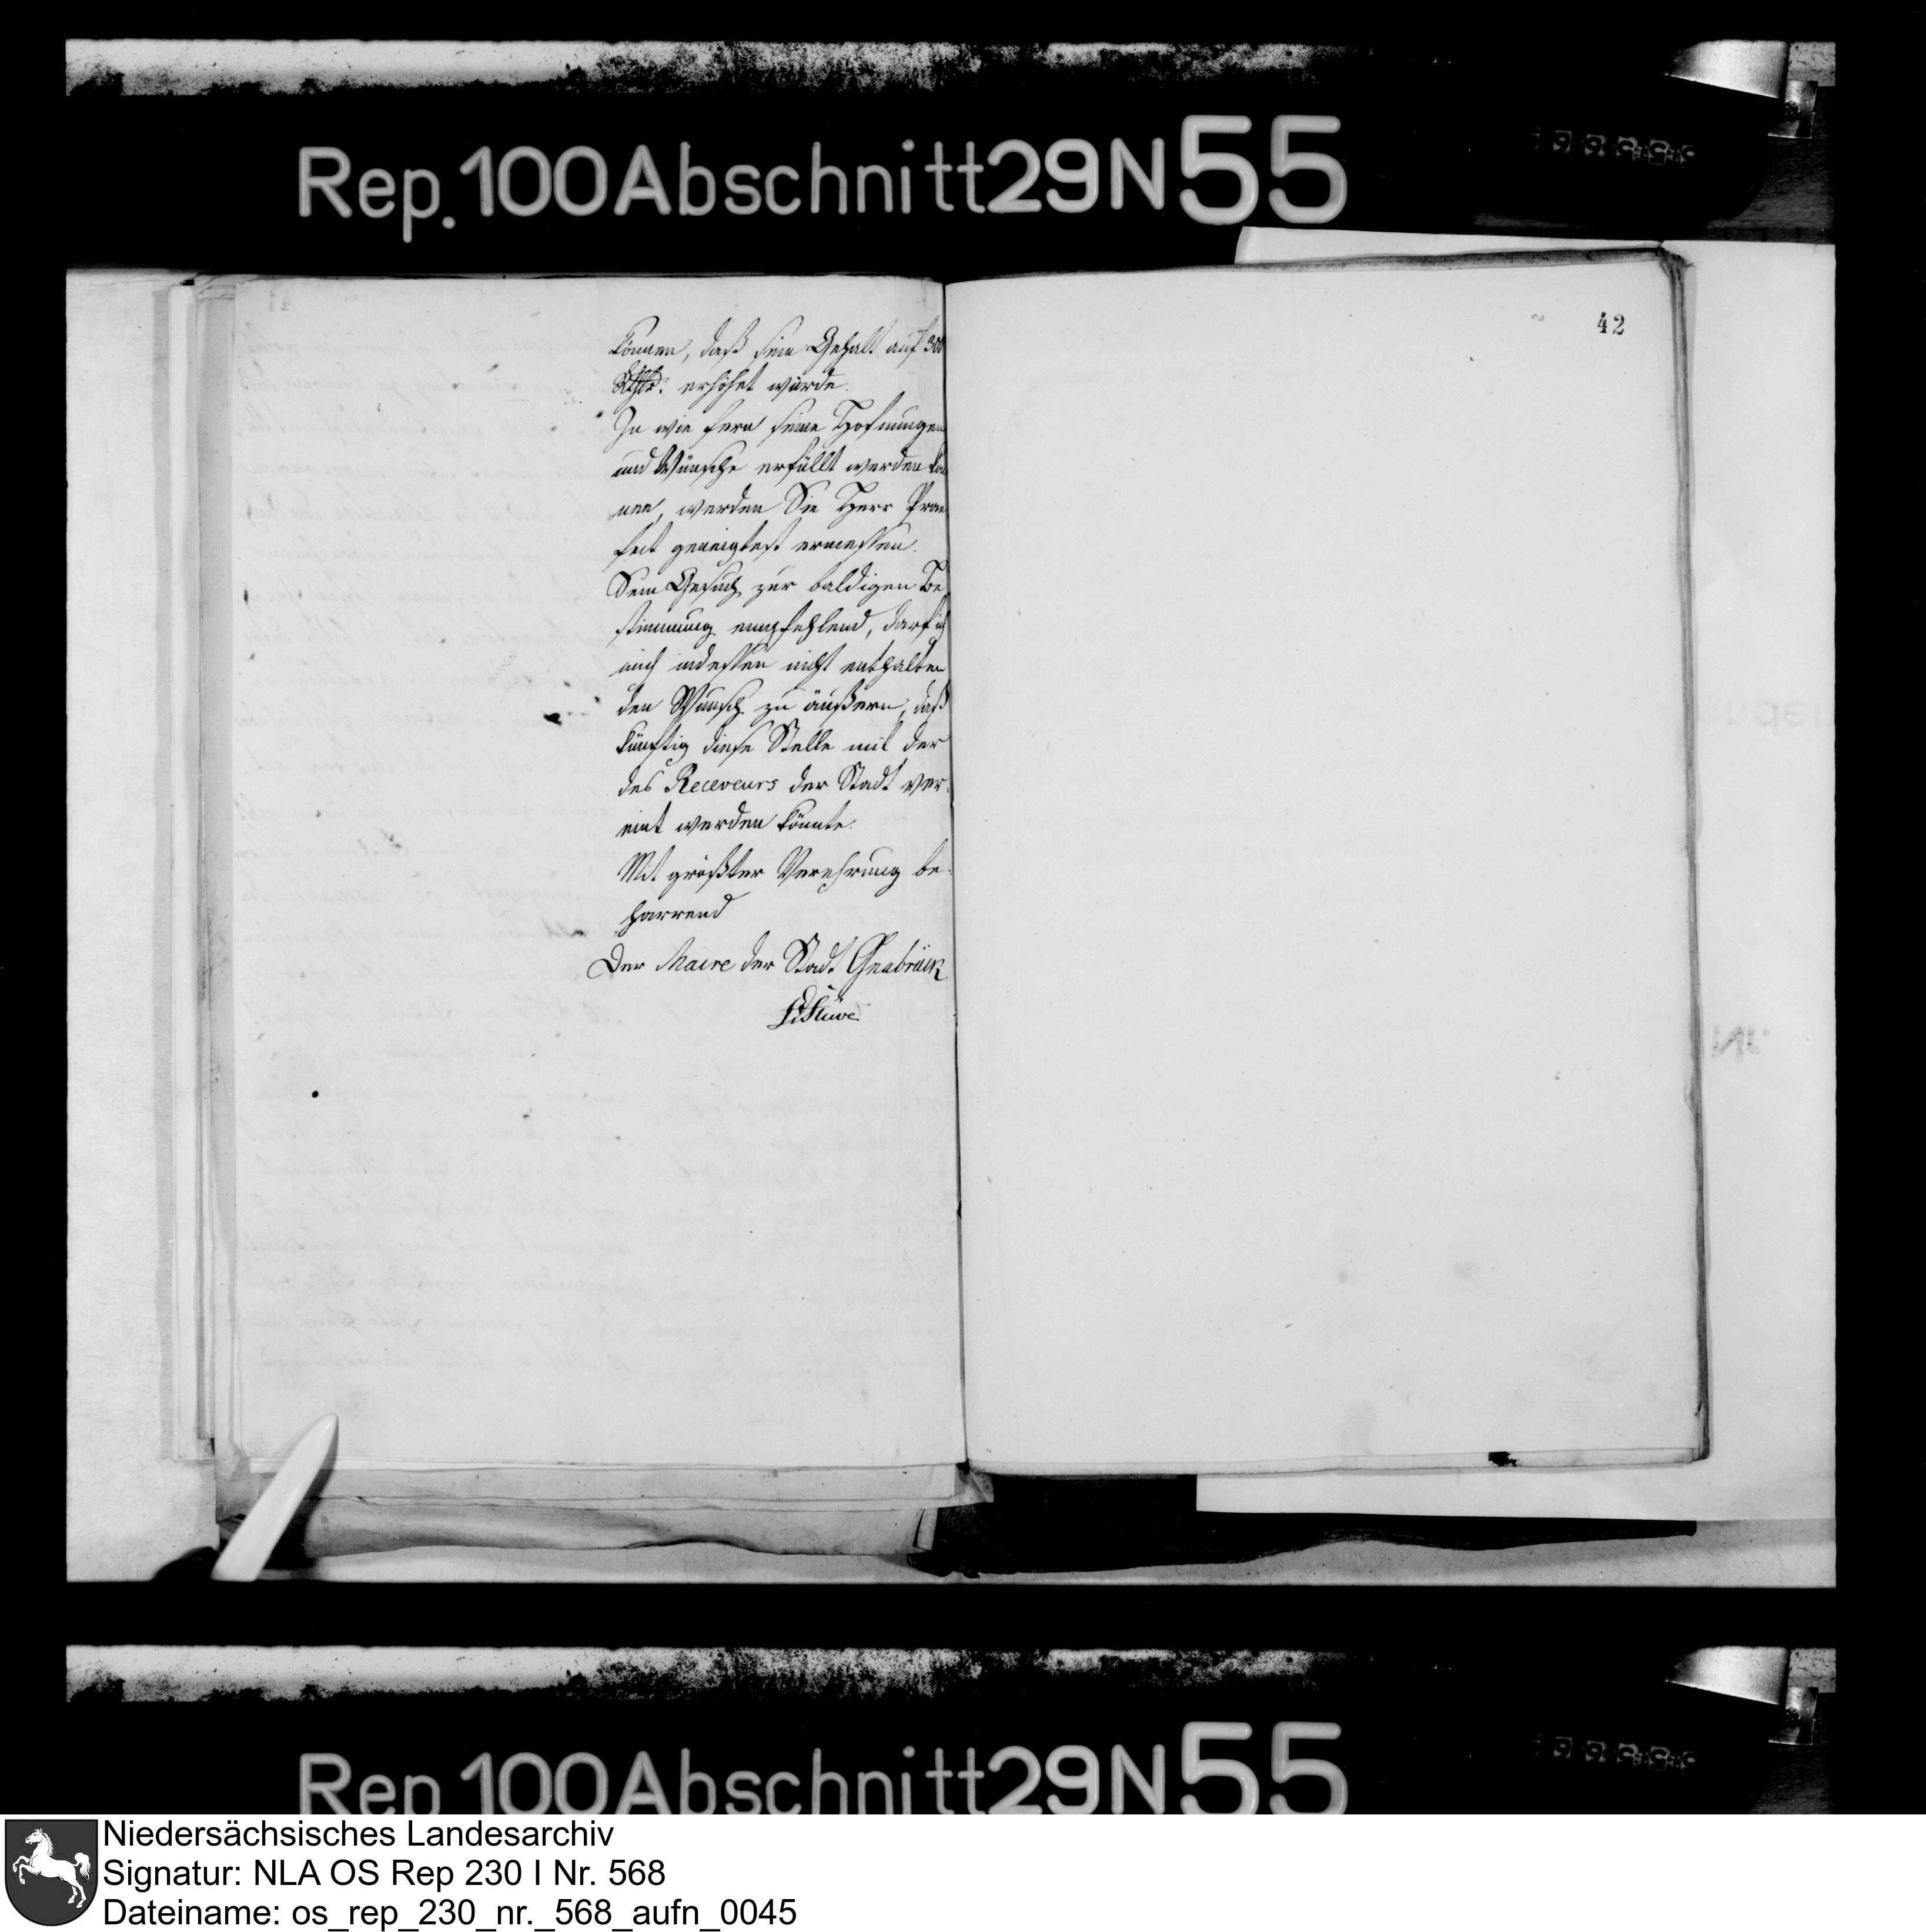 Rep. 100 Abschnitt 29 N 55
42
können, daß sein Gehalt auf 300
Rthlr. erhöhet würde.
In wie fern seine Hofnungen
und Wünsche erfüllt werden kön
nen, werden Sie Herr Prae
fect geneigtest ermessen.
Sein Gesuch zur baldigen Be
stimmung empfehlend, darf ich
mich indessen nicht enthalten
den Wunsch zu äußern, daß
künftig diese Stelle mit der
des Receveurs der Stadt ver-
eint werden könnte.
Mit größter Verehrung be-
harrend
Der Maire der Stadt Osnabrück
Stüve
Rep 100 Abschnitt 29 N 55
Niedersächsisches Landesarchiv
Signatur: NLA OS Rep 230 I Nr. 568
Dateiname: os_rep_230_nr._568_aufn_0045